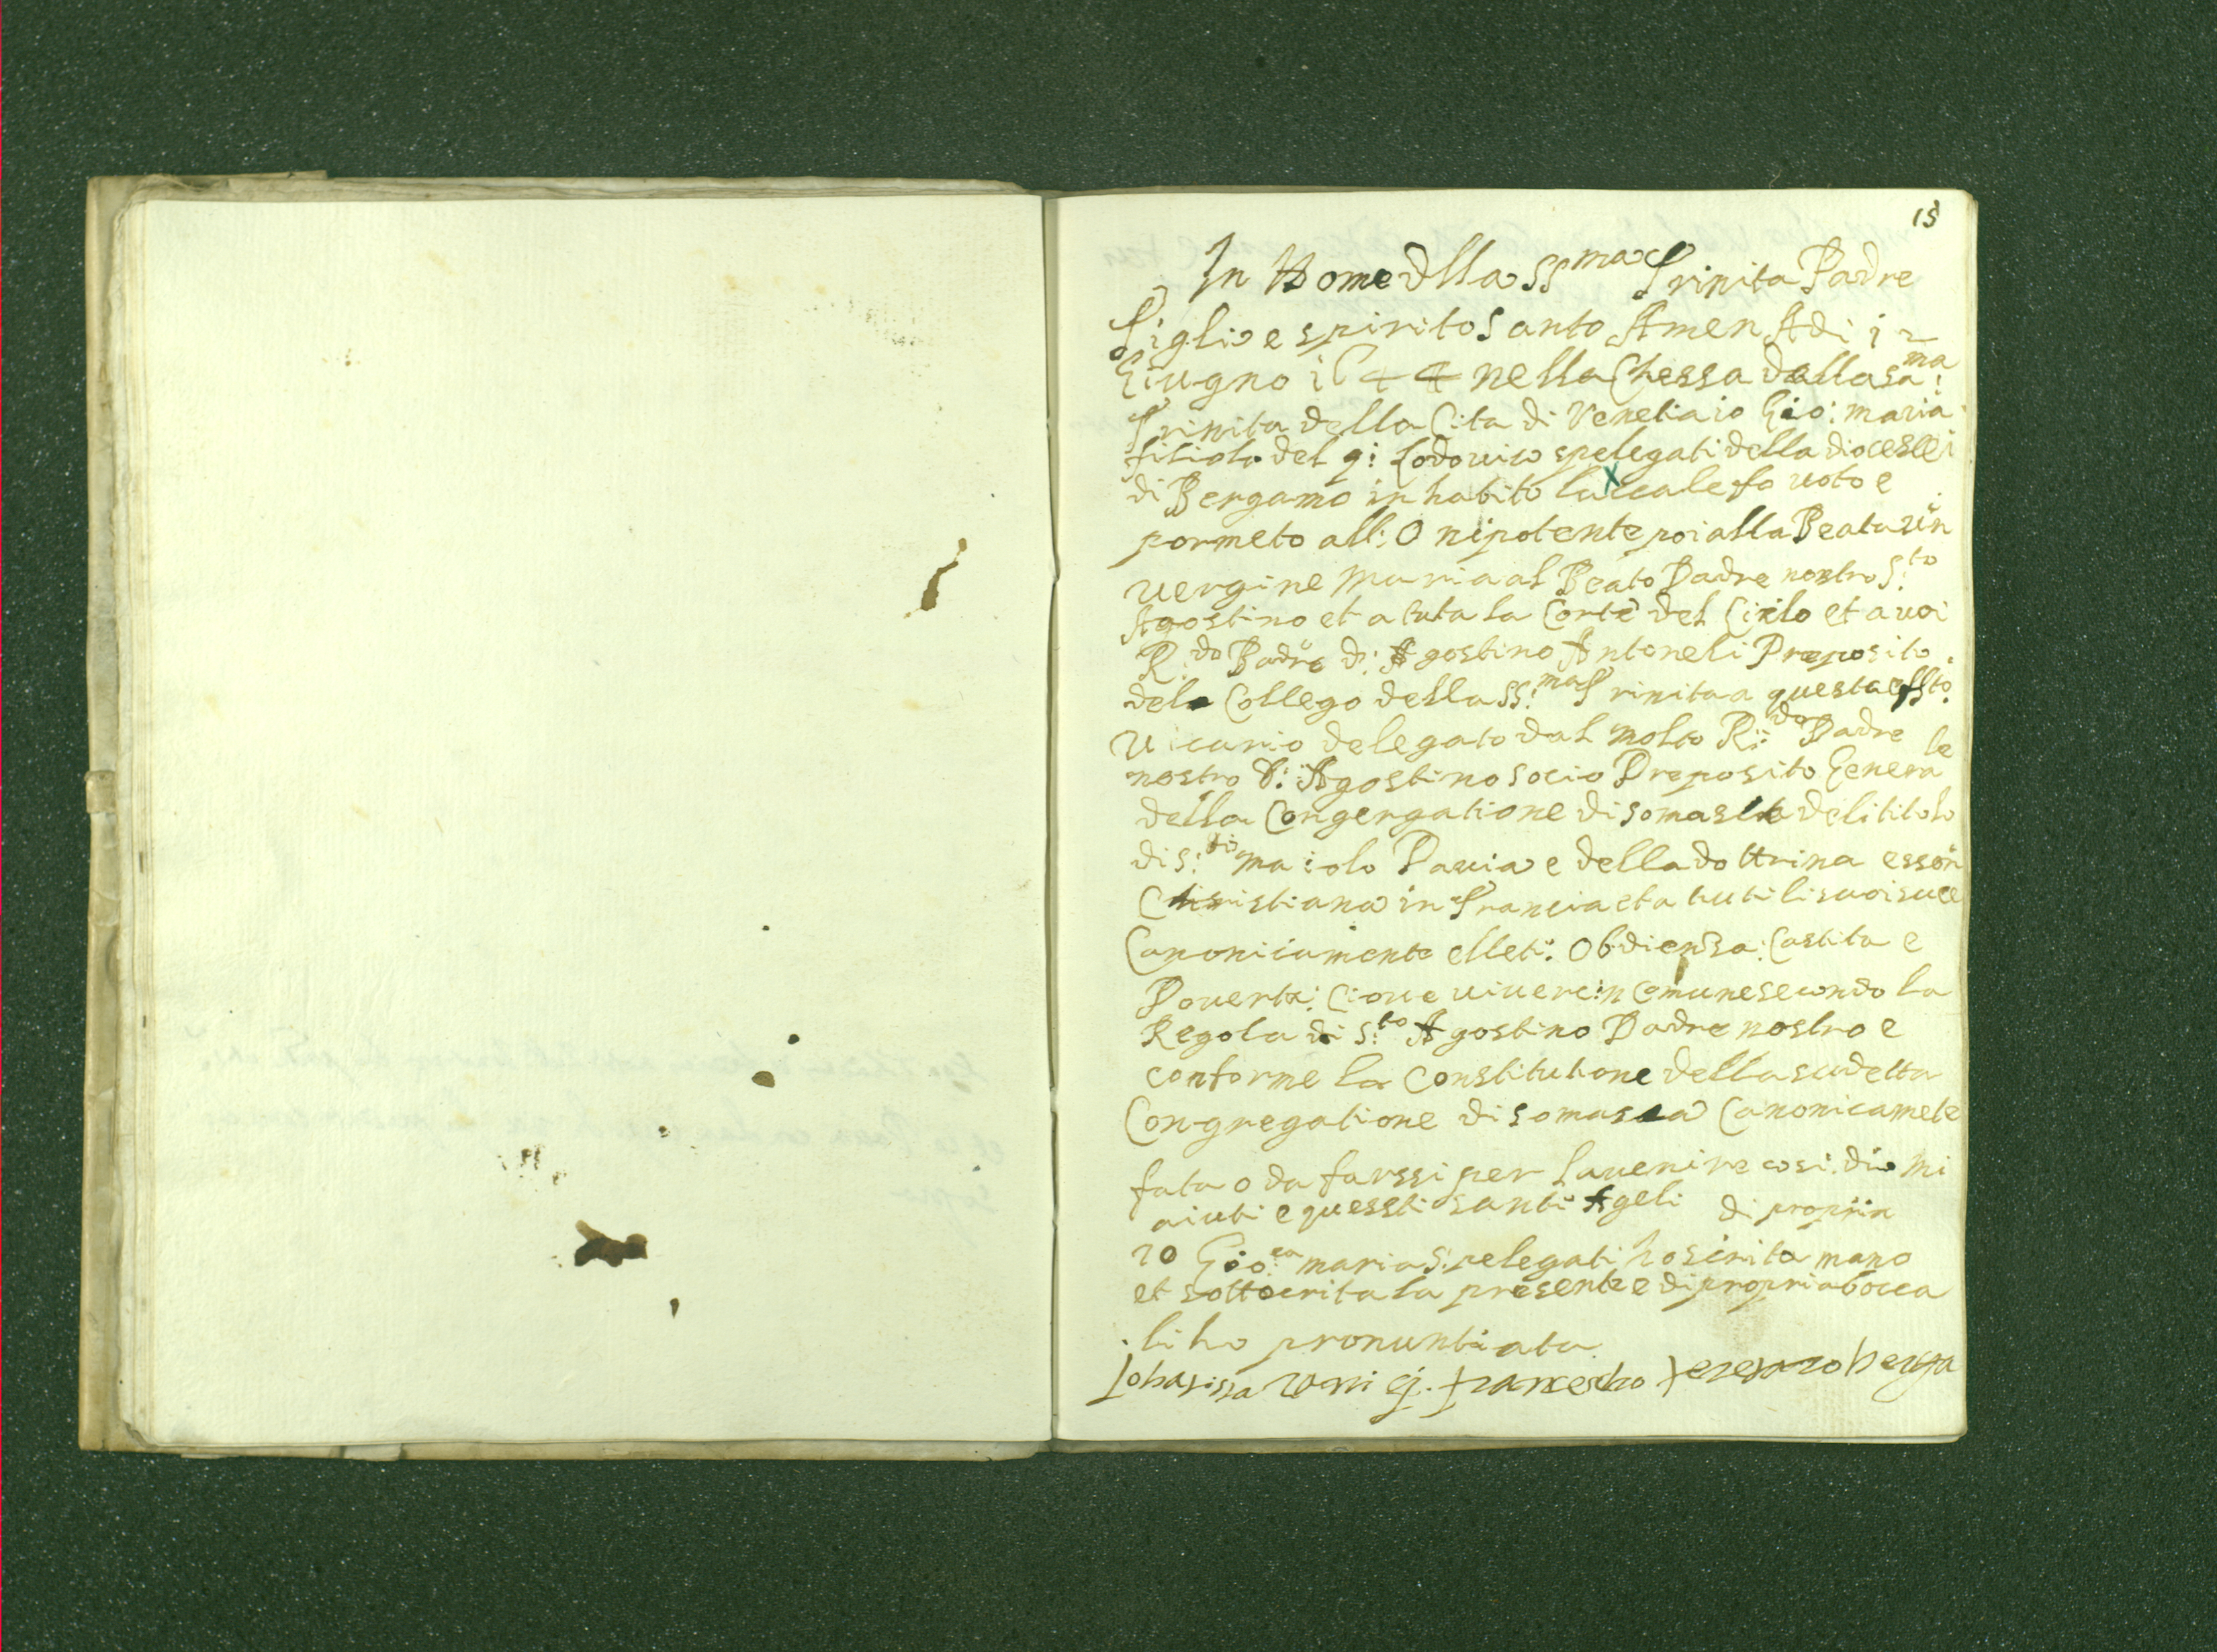 15
In Nome dlla SSma Trinita Padre
Figlio e spirito Santo Amen Adi 12
Giugno 1644 nella Chessa della Sa:ma
Trinita della Cita di Venetia io Gio: maria
filiolo del q: Lodovico spelegati della diocesse
di Bergamo in habito laicale fo voto e
pormeto all: Onipotente poi alla Beata
vergine Maria al Beato Padre nostro S:to
Agostino et a tuta la Corte del Cielo et a voi
R:do Padre d: Agostino Antoneli Preposito
del Collego della SS:ma Trinita a questa
vicario delegato dal molto R:do Padre
nostro D: Agostino Socio Preposito Generale
della Congergatione di somasca del titolo
di S:to maiolo Pavia e della dottrina
Christiana in Francia et a tuti li suoi suce
Canonicamente elleti: Obdiensa: Castita e
Poverta: Cioue vivere in Comune secondo la
Regola di S:to Agostino Padre nostro e
conforme la Constitutione della sudetta
Congregatione di somasca Canonicamete
fata o da farssi per lavenire cosi dio mi
aiuti e quessti santi Ageli di propria
io Gio: maria Spelegati ho scrita mano
et sottocrita la presente e di propria bocca
li ho pronuntiata
francescho